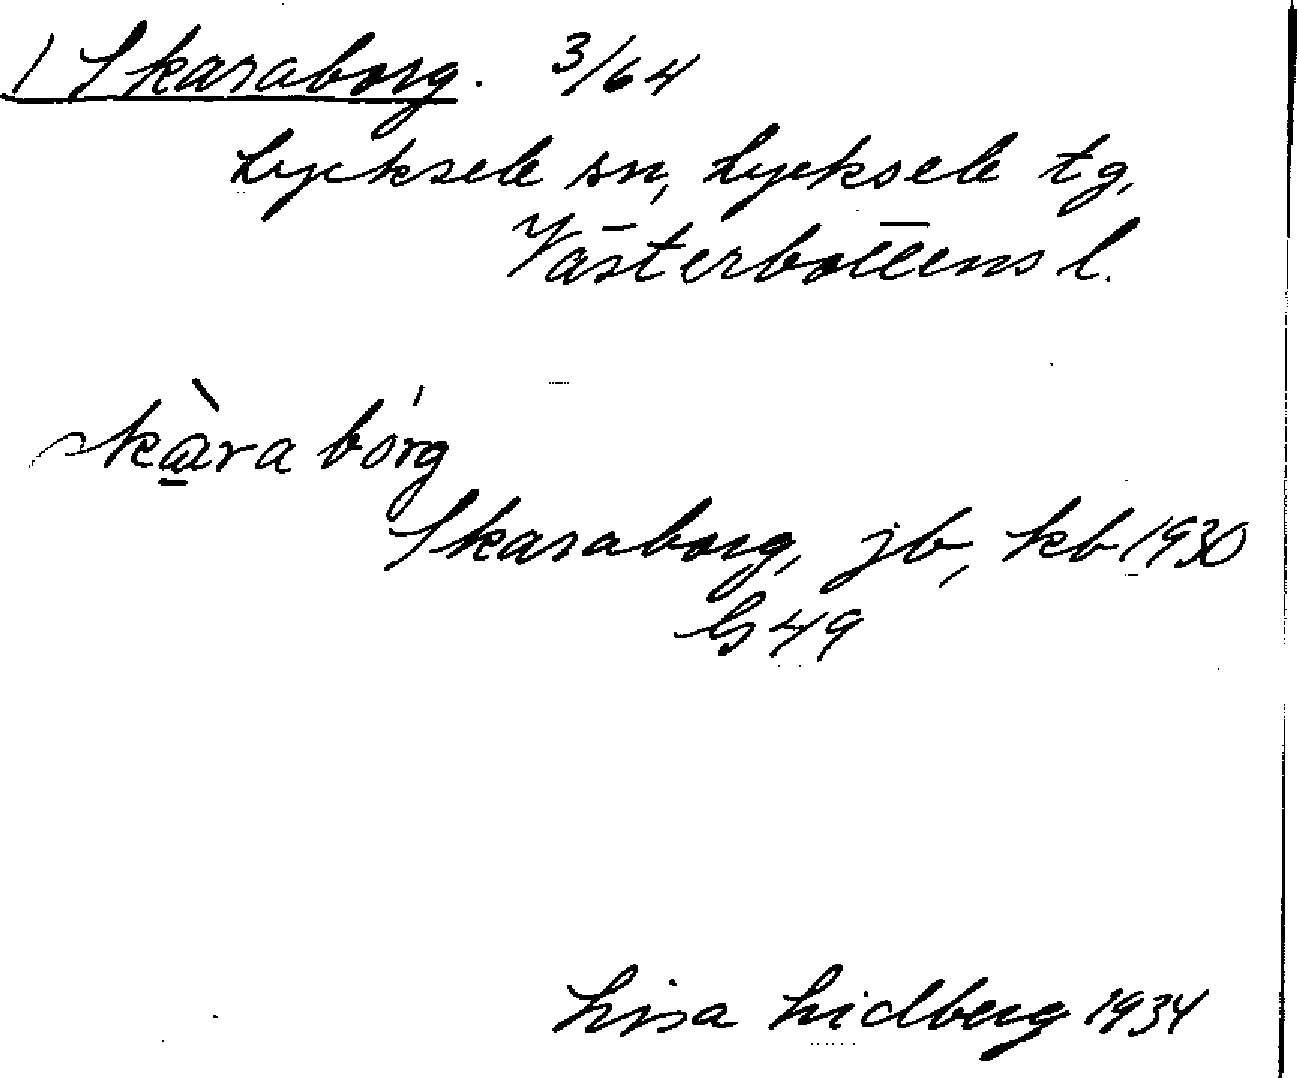 1 Skaraborg. 3/64
Lycksele sn, Lycksele tg,
Västerbottens l.
skàra bórg
Skaraborg, jb, kb 1930
Gs 49
Lisa Lidberg 1934